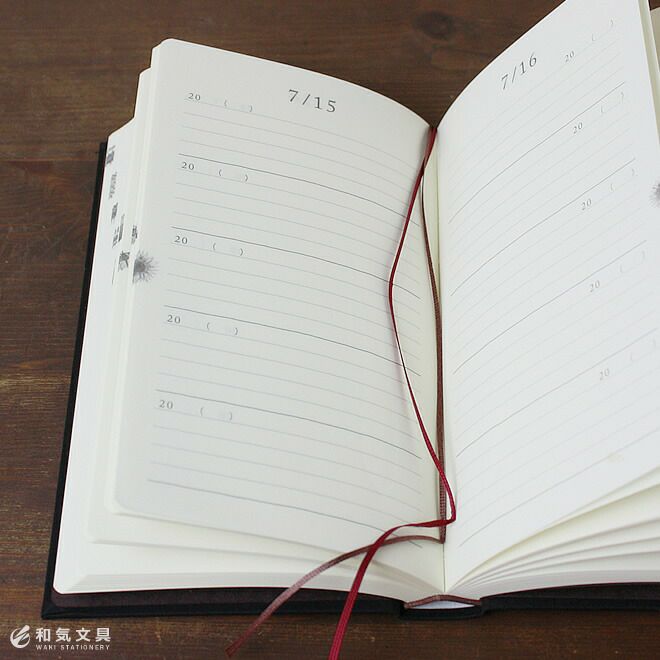 7/15
20 ( )
20 ( )
20 ( )
20 ( )
20 ( )
7/16
20 ( )
20 ( )
20 ( )
20 ( )
20 ( )
和気文具
WAKI STATIONERY